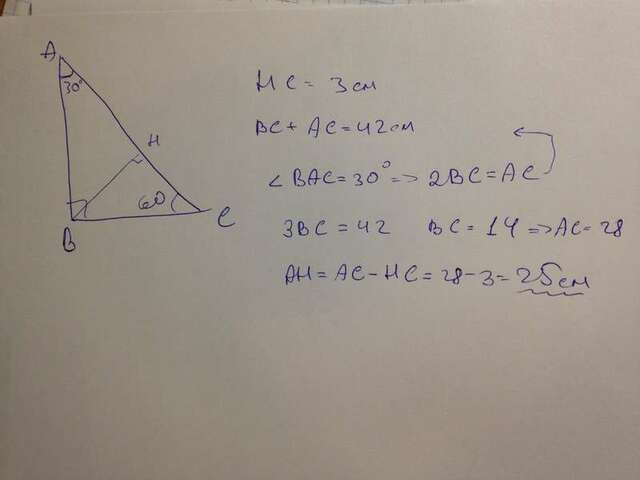 A
30°
H
60
B
C
HC = 3см
BC + AC = 42см
∠BAC = 30° => 2BC = AC
3BC = 42 BC = 14 => AC = 28
AH = AC - HC = 28 - 3 = 25см